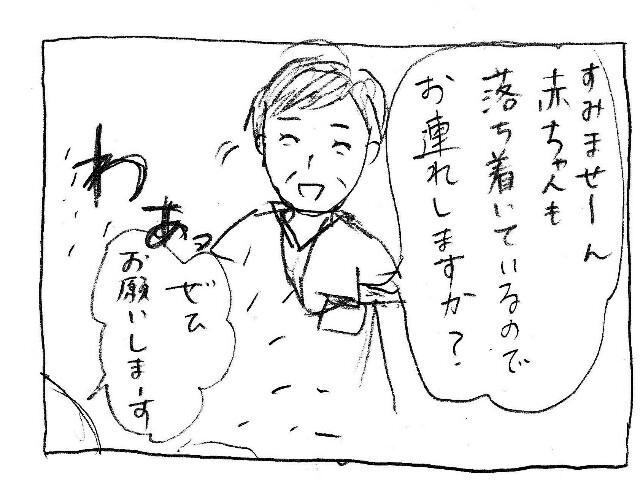 すみませーん
赤ちゃんも
落ち着いているので
お連れしますか?
わぁッ
ぜひ
お願いしまーす